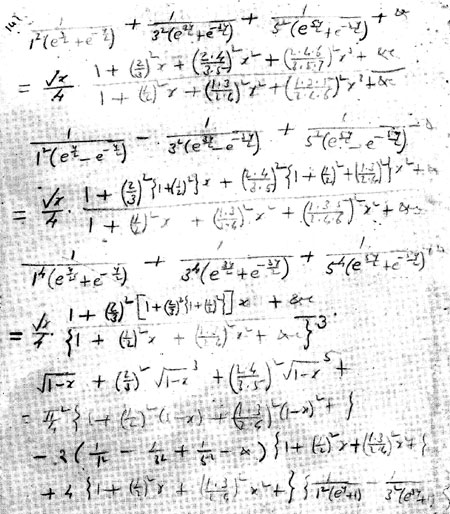 1/(1²(e^{y/2}+e^{-y/2})) + 1/(3²(e^{3y/2}+e^{-3y/2})) + 1/(5²(e^{5y/2}+e^{-5y/2})) + &c
= √x/4 · (1 + (2/3)²x + (2·4/3·5)²x² + (2·4·6/3·5·7)²x³ + &c)/(1 + (1/2)²x + (1·3/2·4)²x² + (1·3·5/2·4·6)²x³ + &c)
1/(1²(e^{y/2}-e^{-y/2})) - 1/(3²(e^{3y/2}-e^{-3y/2})) + 1/(5²(e^{5y/2}-e^{-5y/2})) - &
= √x/4 · (1 + (2/3)²{1+(1/2)²}x + (2·4/3·5)²{1+(1/2)²+(1·3/2·4)²}x² + &c)/(1 + (1/2)²x + (1·3/2·4)²x² + (1·3·5/2·4·6)² + &c)
1/(1⁴(e^{y/2}+e^{-y/2})) + 1/(3⁴(e^{3y/2}+e^{-3y/2})) + 1/(5⁴(e^{5y/2}+e^{-5y/2}))
= √x/4 · (1 + (2/3)²[1+(2/3)²{1+(1/2)²}]x + &c)/{1 + (1/2)²x + (1·3/2·4)²x² + &c}³
√1-x + (2/3)² √1-x³ + (2·4/3·5)² √1-x⁵ +
= π²/4 {1 + (1/2)²(1-x) + (1·3/2·4)²(1-x)² + }
- 2 (1/1² - 1/3² + 1/5² - &) {1 + (1/2)²x + (1·3/2·4)²x² + }
+ 4 {1 + (1/2)²x + (1·3/2·4)²x² + } {1/(1²(e^y+1)) - 1/(3²(e^{3y}+1))